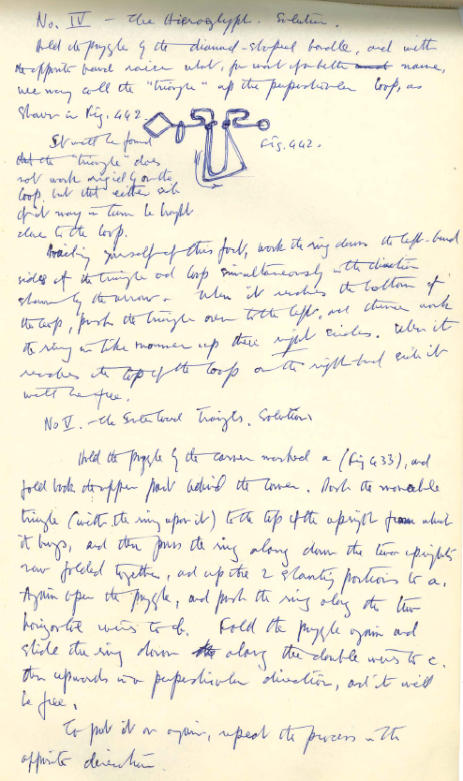 No. IV – The Hieroglyph. Solution.
Hold the puzzle by the diamond-shaped handle, and with
the opposite hand raise what, for want of a better name,
we may call the "triangle" up the perpendicular loop, as
shown in Fig. 442.
Fig. 442.
It will be found
that the "triangle" does
not work rigidly on the
loop, but that either side
of it may in turn be brought
close to the loop.
Availing yourself of this fact, work the ring down the left-hand
sides of the triangle and loop simultaneously in the direction
shown by the arrow. When it reaches the bottom of
the loop, push the triangle over to the left, and thence work
the ring in like manner up their right sides. When it
reaches the top of the loop on the right-hand side it
will be free.
No V. – The Interlaced Triangles. Solution
Hold the puzzle by the corner marked a (Fig 433), and
fold back the upper part behind the lower. Push the moveable
triangle (with the ring upon it) to the top of the upright from which
it hangs, and then pass the ring along down the two uprights
now folded together, and up the 2 slanting portions to a.
Again open the puzzle, and push the ring along the two
horizontal wires to b. Fold the puzzle again and
slide the ring down along the double wires to c.
then upwards in a perpendicular direction, and it will
be free.
To put it on again, repeat the process in the
opposite direction.